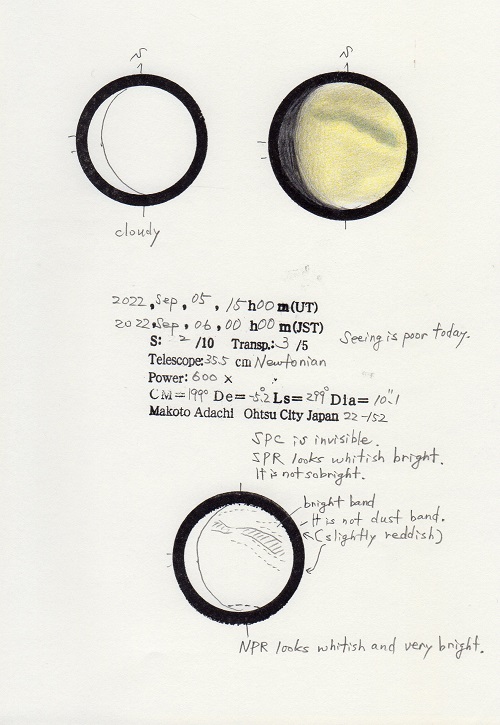 N
N
cloudy
2022, Sep, 05, 15h00m(UT)
2022, Sep, 06, 00h00m(JST)
S: 2/10 Transp.: 3/5
Seeing is poor today.
Telescope: 35.5 cm Newtonian
Power: 600 x
CM=199° De=-5.2° Ls=299° Dia=10".1
Makoto Adachi Ohtsu City Japan 22-152
SPC is invisible.
SPR looks whitish bright.
It is not so bright.
bright band
It is not dust band.
(slightly reddish)
NPR looks whitish and very bright.